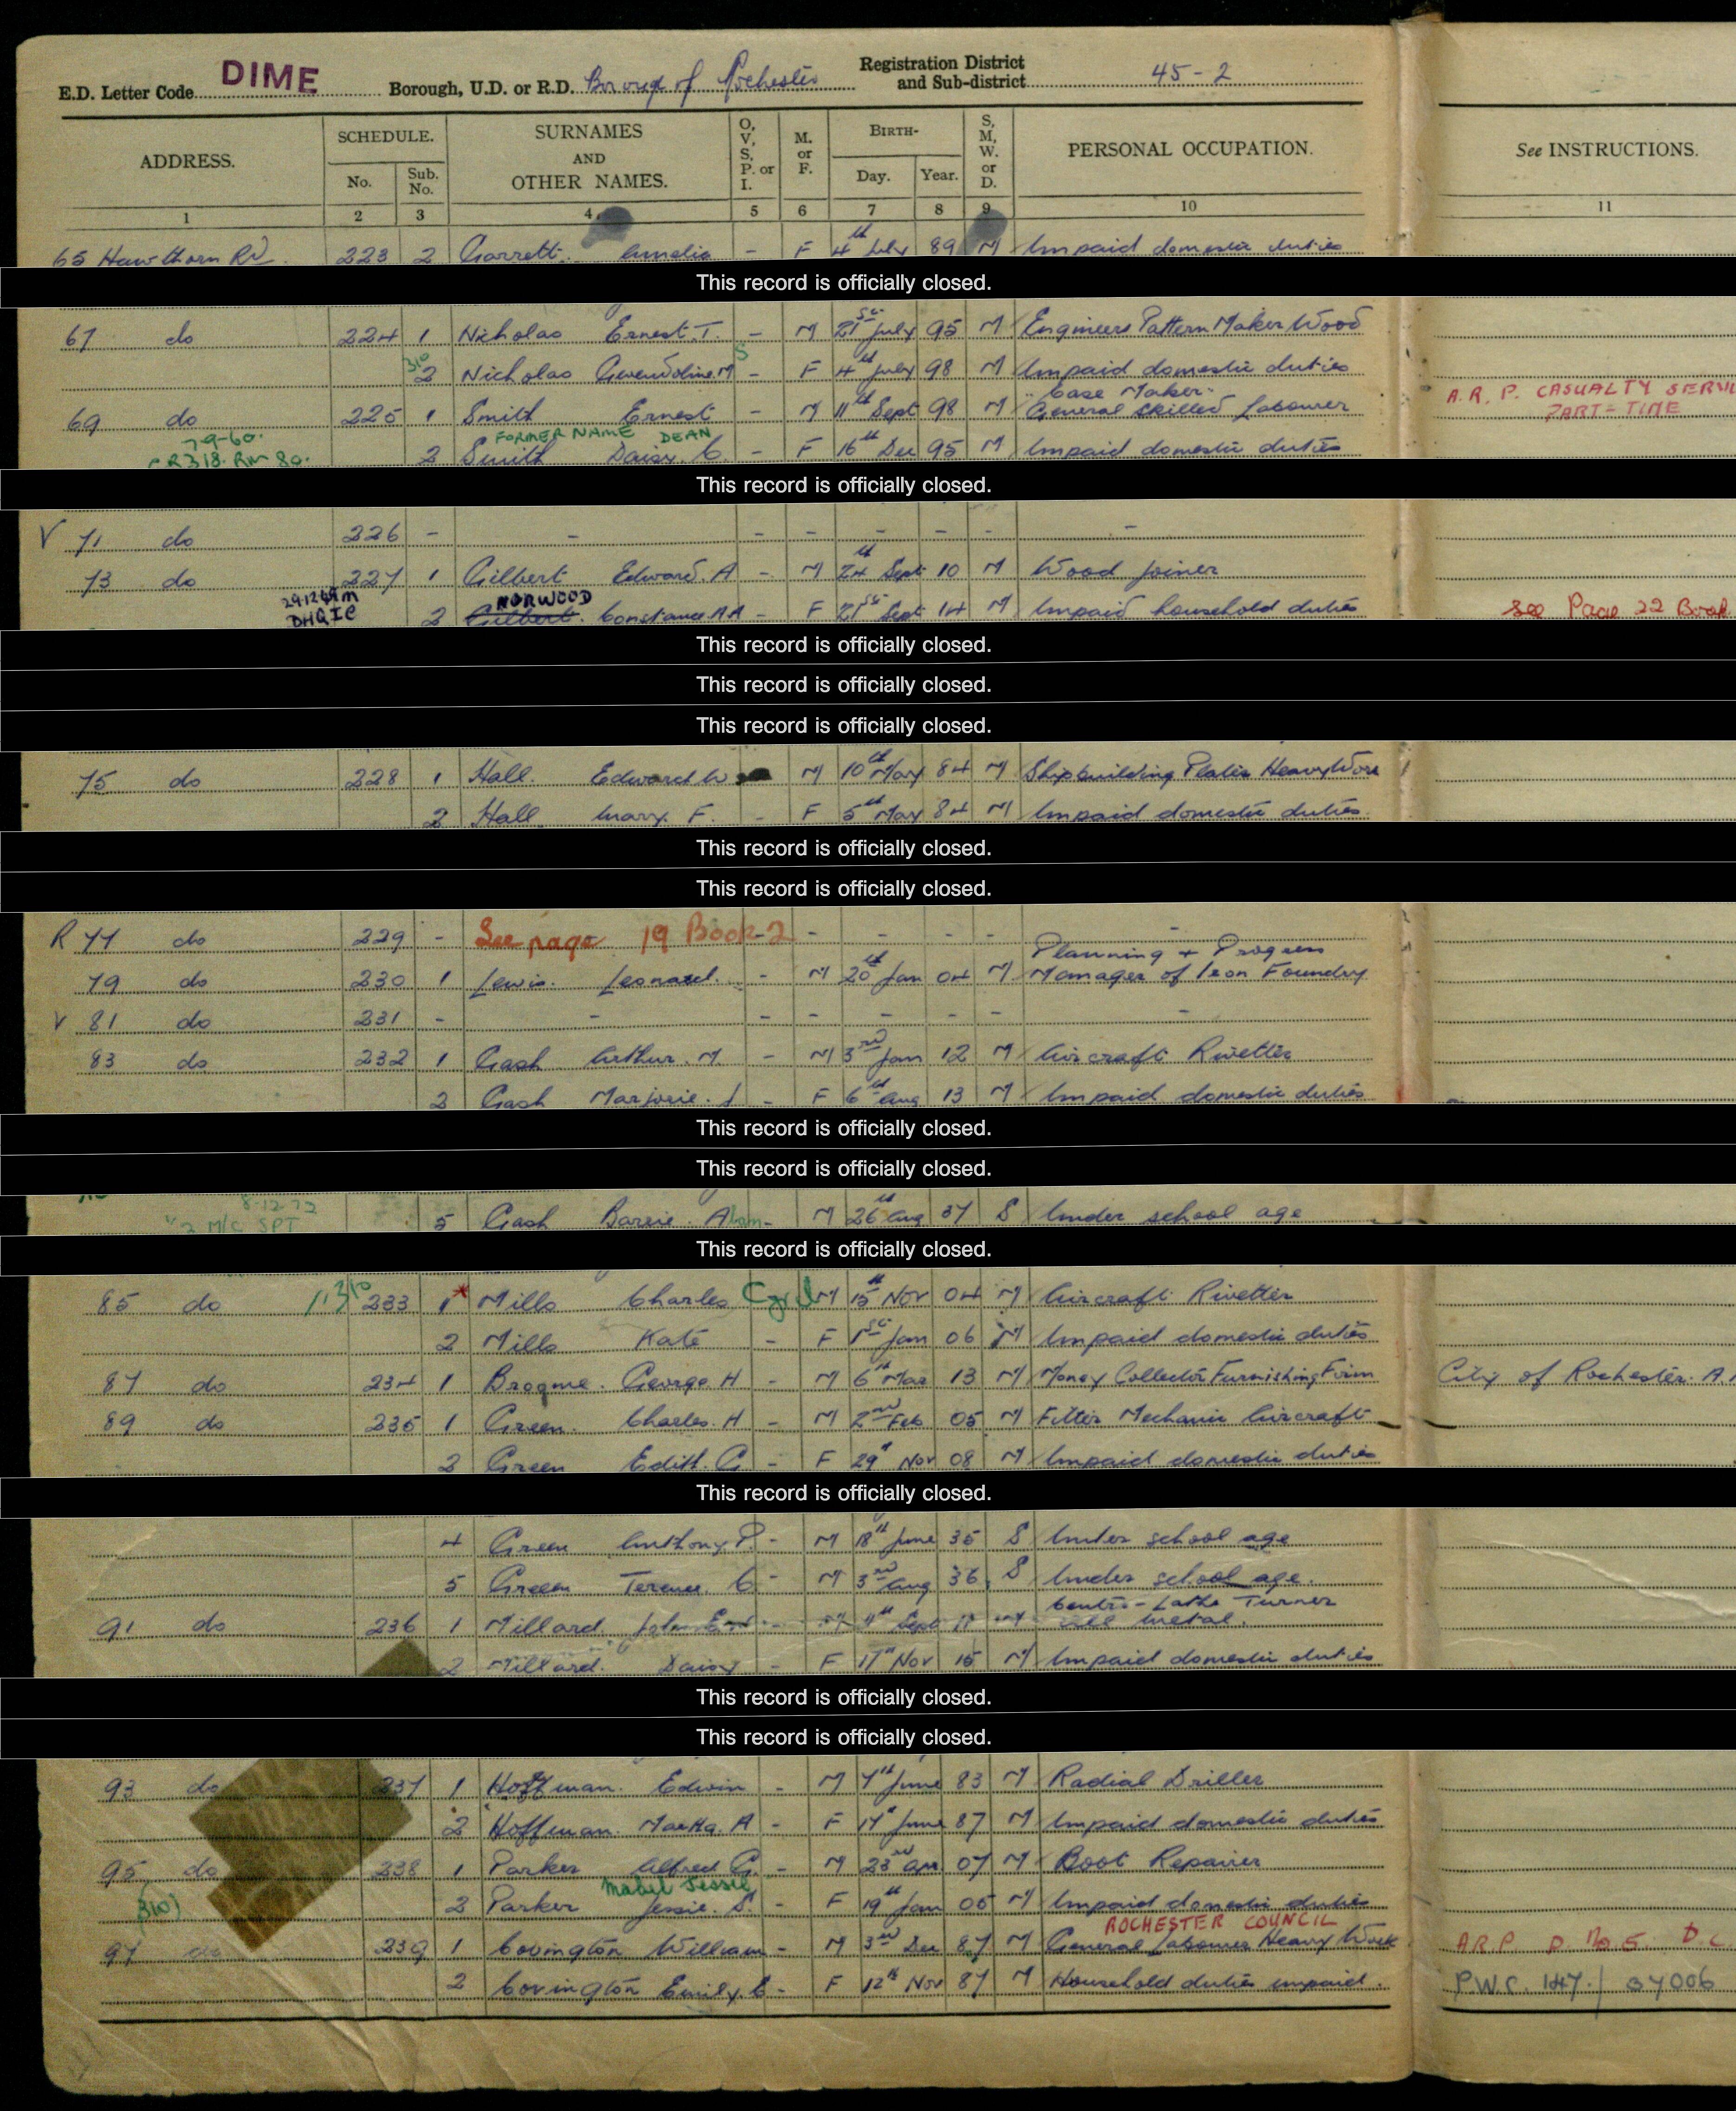 E.D. Letter Code DIME Borough, U.D. or R.D. Borough of Rochester Registration District and Sub-district 45-2
ADDRESS. SCHEDULE. No. Sub. No. SURNAMES AND OTHER NAMES. O, V, S, P. or I. M. or F. BIRTH- Day. Year. S, M, W. or D. PERSONAL OCCUPATION. See INSTRUCTIONS.
1 2 3 4 5 6 7 8 9 10 11
65 Hawthorn Rd 223 2 Garrett Amelia - F 4th July 89 M Unpaid domestic duties
This record is officially closed.
67 do 224 1 Nicholas Ernest. T. - M 21st July 95 M Engineers Pattern Maker Wood
310 2 Nicholas Gwendoline M S - F 4th July 98 M Unpaid domestic duties
Case Maker
A.R.P. CASUALTY
PART-TIME
69 do 225 1 Smith Ernest - M 11th Sept 98 M General Skilled Labourer
FORMER NAME DEAN
7-9-60. CR318. Rm 80. 2 Smith Daisy. C - F 16th Dec 95 M Unpaid domestic duties
This record is officially closed.
V 71 do 226 - - - - - - - -
73 do 227 1 Gilbert Edward. A - M 24th Sept 10 M Wood Joiner
NORWOOD
2 Gilbert Constance A A - F 21st Sept 14 M Unpaid household duties See Page 22 Book
This record is officially closed.
This record is officially closed.
This record is officially closed.
75 do 228 1 Hall. Edward W M 10th May 84 M Shipbuilding Plater Heavy Work
2 Hall Mary. F. - F 5th May 84 M Unpaid domestic duties.
This record is officially closed.
This record is officially closed.
R 77 do 229 - See page 19 Book 2 - - - - - -
Planning + Progress
79 do 230 1 Lewis. Leonard. - M 20th Jan 04 M Manager of Iron Foundry
V 81 do 231 - - - - - - - -
83 do 232 1 Gash Arthur. M - M 3rd Jan 12 M Aircraft Rivetter
2 Gash Marjorie. J - F 6th Aug 13 M Unpaid domestic duties
This record is officially closed.
This record is officially closed.
8-12-72
M/C SPT 5 Gash Barrie. Alan - M 26th Aug 37 S Under school age
This record is officially closed.
85 do 310 233 1* Mills Charles Cyril M 15th Nov 04 M Aircraft Rivetter
2 Mills Kate - F 1st Jan 06 M Unpaid domestic duties
87 do 234 1 Brogme. George. H - M 6th Mar 13 M Money Collector Furnishing Firm City of Rochester. A.
89 do 235 1 Green. Charles. H - M 2nd Feb 05 M Fitter Mechanic Aircraft
2 Green Edith. G - F 29th Nov 08 M Unpaid domestic duties
This record is officially closed.
4 Green Anthony P. - M 18th June 35 S Under school age
5 Green Terence. C - M 3rd Aug 36 S Under school age.
Centre-Lathe Turner
91 do 236 1 Millard. John - M 4th Sept 11 M metal.
2 Millard. Daisy - F 17th Nov 15 M Unpaid domestic duties
This record is officially closed.
This record is officially closed.
93 do 237 1 Hoffman. Edwin - M 7th June 83 M Radial Driller
2 Hoffman. Martha. A - F 14th June 87 M Unpaid domestic duties
95 do 238 1 Parker Alfred G. - M 23rd Apr 07 M Boot Repairer
Mabel Jessie
310) 2 Parker Jessie. S. - F 19th Jan 05 M Unpaid domestic duties
ROCHESTER COUNCIL
97 do 239 1 Covington William - M 3rd Dec 87 M General Labourer Heavy Work A.R.P.
2 Covington Emily. E - F 12th Nov 87 M Household duties unpaid. P.W.C. 147. / 37006